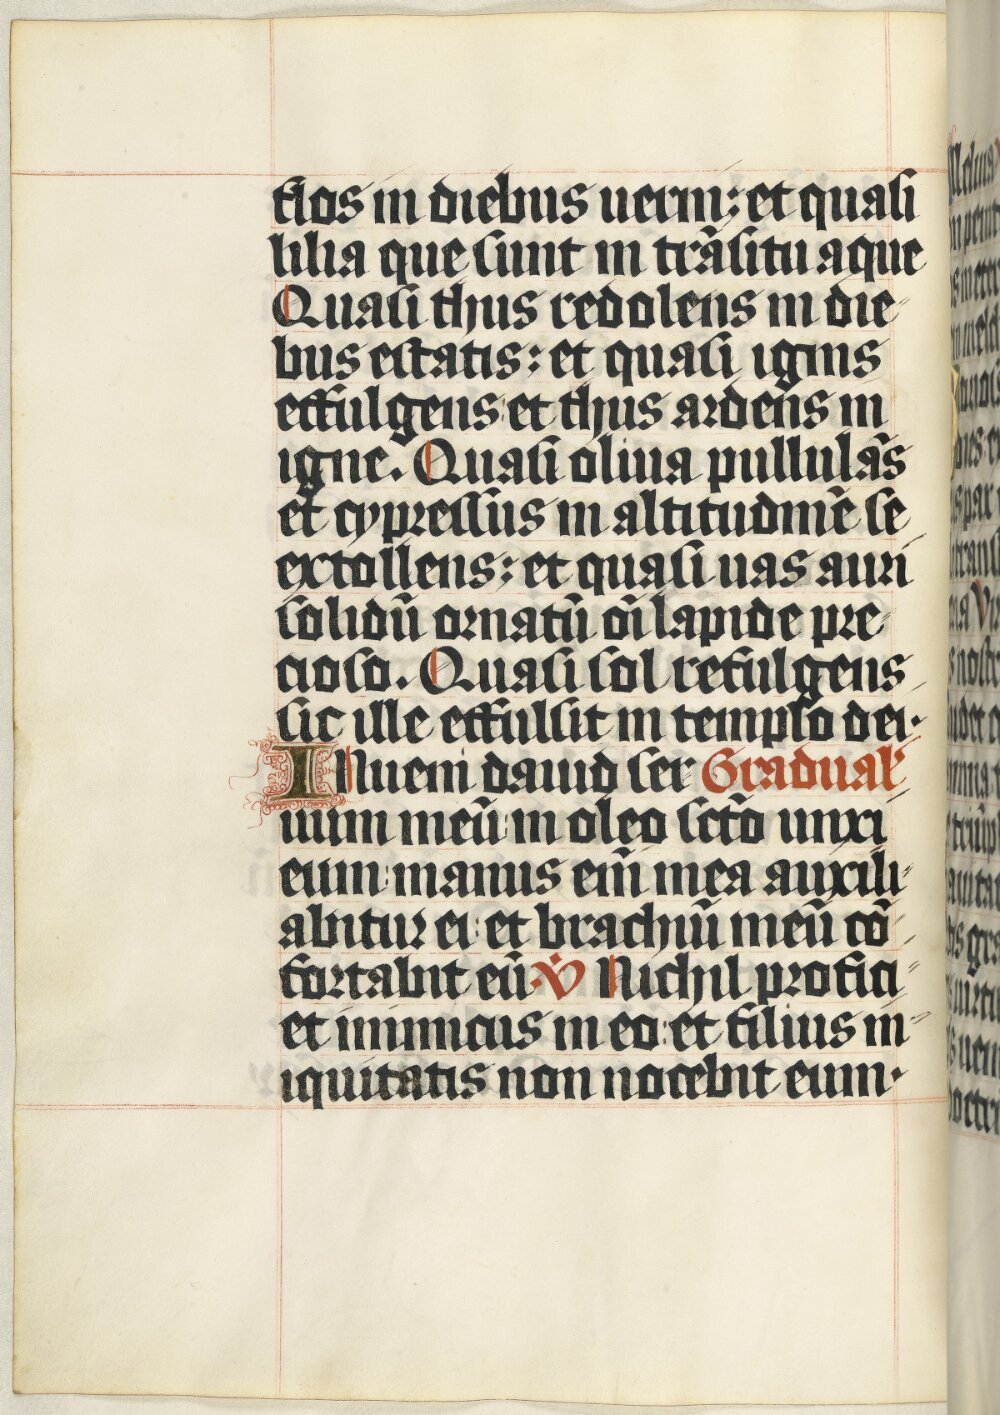 flos in diebus uerni; et quasi
lilia que sunt in trāsitu aque
Quasi thus redolens in die
bus estatis: et quasi ignis
effulgens et thus ardens in
igne. Quasi oliua pullulās
et cypressus in altitudinē se
extollens: et quasi uas auri
solidū ornatū oī lapide pre
cioso. Quasi sol refulgens
sic ille effulsit in templo dei.
INueni dauid ser Gradual'
uum meū: in oleo sctō unxi
eum: manus eni mea auxili
abitur ei: et brachiū meū cō
fortabit eū. V̇ Nichil profici
et inimicus in eo: et filius in
iquitatis non nocebit eum.